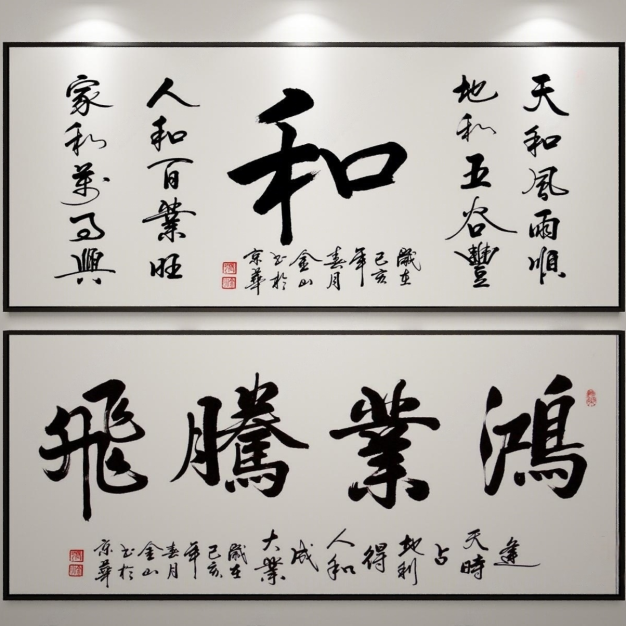 天和風雨順
地和五谷豐
和
歲在
己亥
年
春月
金山
书於
京華
人和百業旺
家和萬事興
鴻業騰飛
逢
天時
占
地利
得
人和
成
大業
歲在
己亥
年
春月
金山
书於
京華